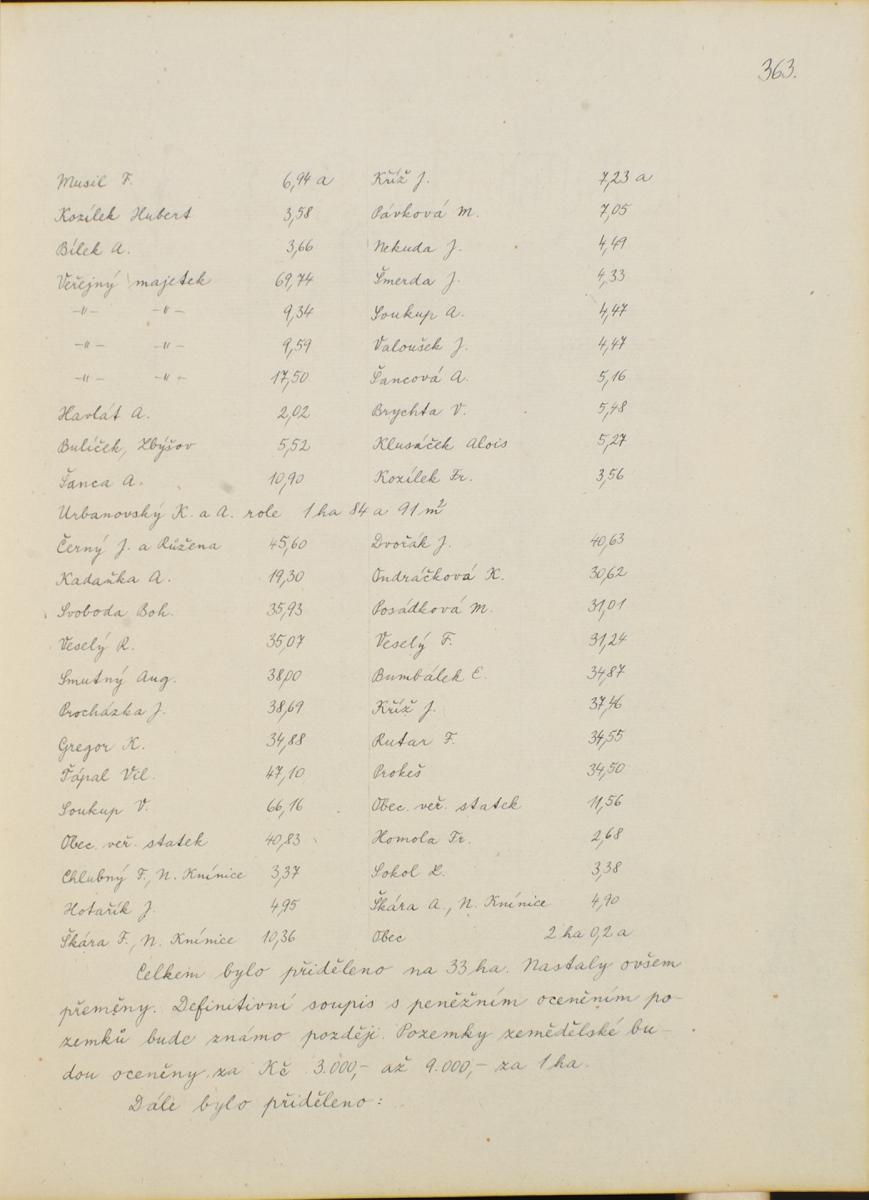 363.
Musil F. 6,94 a Kříž J. 7,23 a
Kozílek Hubert 3,58 Pávková M. 7,05
Bílek A. 3,66 Nekuda J. 4,49
Veřejný majetek 69,74 Šmerda J. 4,33
-"- -"- 9,34 Soukup A. 4,47
-"- -"- 9,59 Valoušek J. 4,47
-"- -"- 17,50 Šancová A. 5,16
Havlát A. 2,02 Brychta V. 5,48
Bulíček, Zbýšov 5,52 Klusáček Alois 5,27
Šanca A. 10,90 Kozílek Fr. 3,56
Urbanovský K. a A. role 1 ha 84 a 91 m²
Černý J. a Růžena 45,60 Dvořák J. 40,63
Kadaňka A. 19,30 Ondráčková K. 30,62
Svoboda Boh. 35,93 Posádková M. 31,01
Veselý R. 35,07 Veselý F. 31,24
Smutný Aug. 38,00 Bumbálek E. 34,87
Procházka J. 38,69 Kříž J. 37,46
Gregor K. 34,88 Rutar F. 34,55
Ťápal Vil. 47,10 Prokeš 34,50
Soukup V. 66,16 Obec. veř. statek 11,56
Obec. veř. statek 40,83 Homola Fr. 2,68
Chlubný F., N. Knínice 3,37 Sokol 3,38
Hotařík J. 4,95 Škára A., N. Knínice 4,90
Škára F., N. Knínice 10,36 Obec 2 ha 0,2 a
Celkem bylo přiděleno na 33 ha. Nastaly ovšem
přeměny. Definitivní soupis s peněžním oceněním po-
zemků bude známo později. Pozemky zemědělské bu-
dou oceněny za Kč 3.000,- až 9.000,- za 1 ha.
Dále bylo přiděleno: